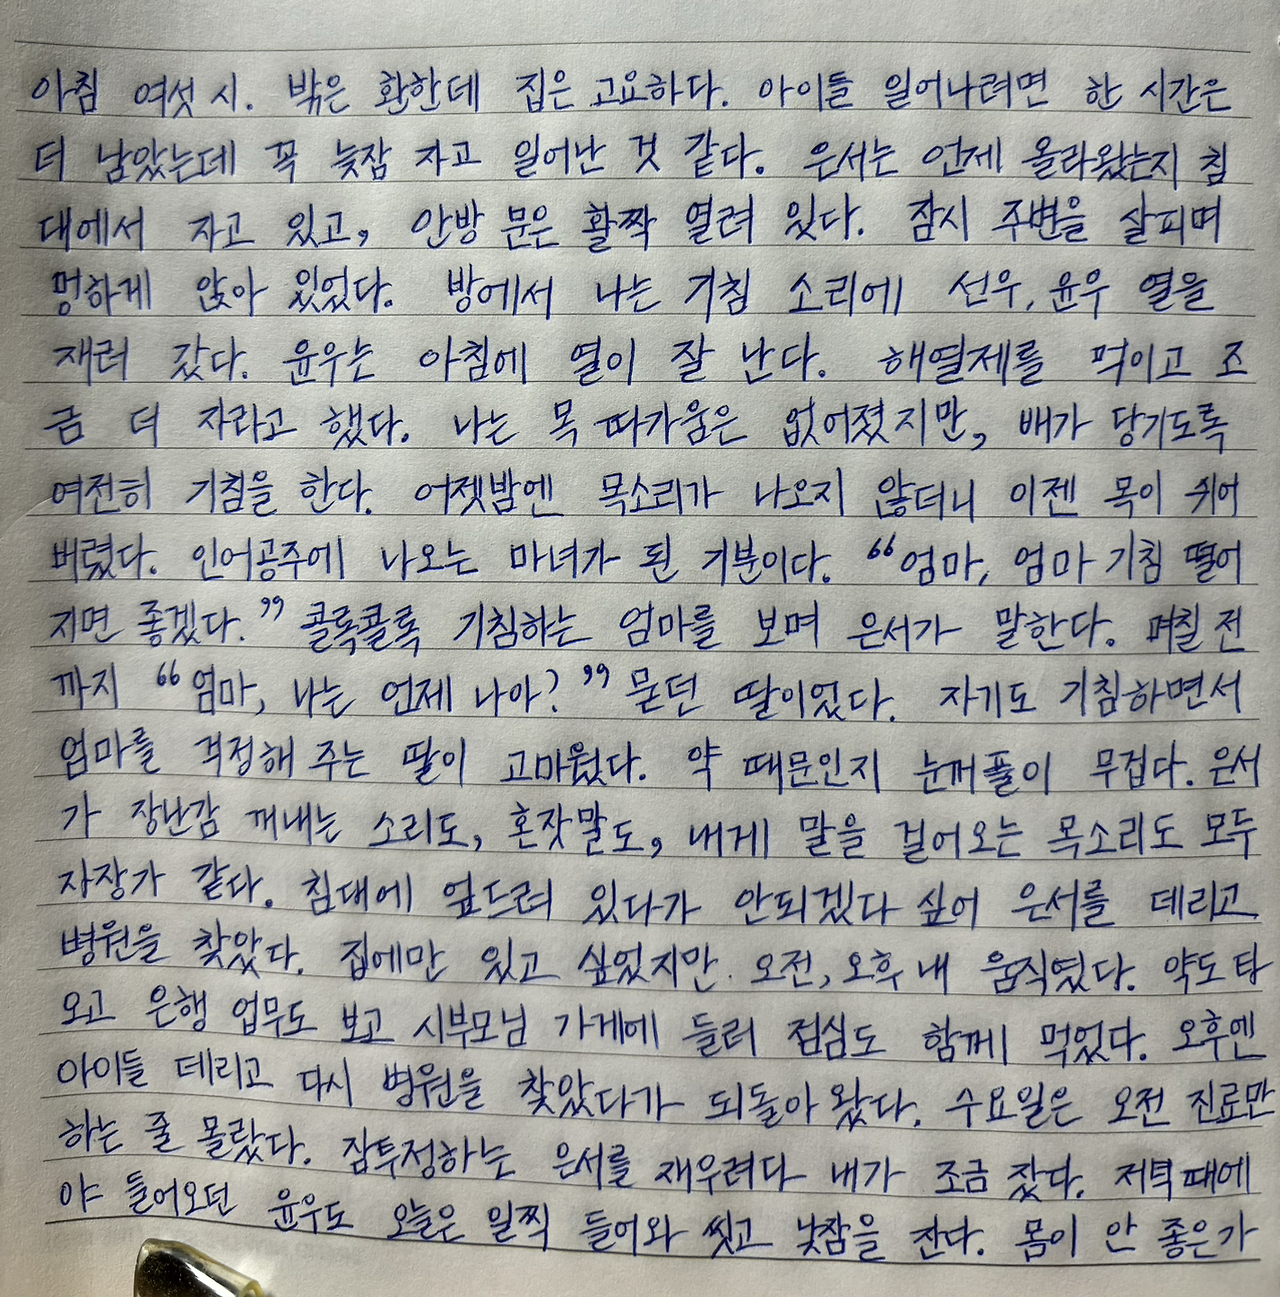 아침 여섯 시. 밖은 환한데 집은 고요하다. 아이들 일어나려면 한 시간은
더 남았는데 꼭 늦잠 자고 일어난 것 같다. 은서는 언제 올라왔는지 침
대에서 자고 있고, 안방 문은 활짝 열려 있다. 잠시 주변을 살피며
멍하게 앉아 있었다. 방에서 나는 기침 소리에 선우, 윤우 열을
재러 갔다. 윤우는 아침에 열이 잘 난다. 해열제를 먹이고 조
금 더 자라고 했다. 나는 목 따가움은 없어졌지만, 배가 당기도록
여전히 기침을 한다. 어젯밤엔 목소리가 나오지 않더니 이젠 목이 쉬어
버렸다. 인어공주에 나오는 마녀가 된 기분이다. “엄마, 엄마 기침 떨어
지면 좋겠다.” 콜록콜록 기침하는 엄마를 보며 은서가 말한다. 며칠 전
까지 “엄마, 나는 언제 나아?” 묻던 딸이었다. 자기도 기침하면서
엄마를 걱정해 주는 딸이 고마웠다. 약 때문인지 눈꺼풀이 무겁다. 은서
가 장난감 꺼내는 소리도, 혼잣말도, 내게 말을 걸어오는 목소리도 모두
자장가 같다. 침대에 엎드려 있다가 안되겠다 싶어 은서를 데리고
병원을 찾았다. 집에만 있고 싶었지만. 오전, 오후 내 움직였다. 약도 타
오고 은행 업무도 보고 시부모님 가게에 들러 점심도 함께 먹었다. 오후엔
아이들 데리고 다시 병원을 찾았다가 되돌아 왔다. 수요일은 오전 진료만
하는 줄 몰랐다. 잠투정하는 은서를 재우려다 내가 조금 잤다. 저녁때에
야 들어오던 윤우도 오늘은 일찍 들어와 씻고 낮잠을 잔다. 몸이 안 좋은가